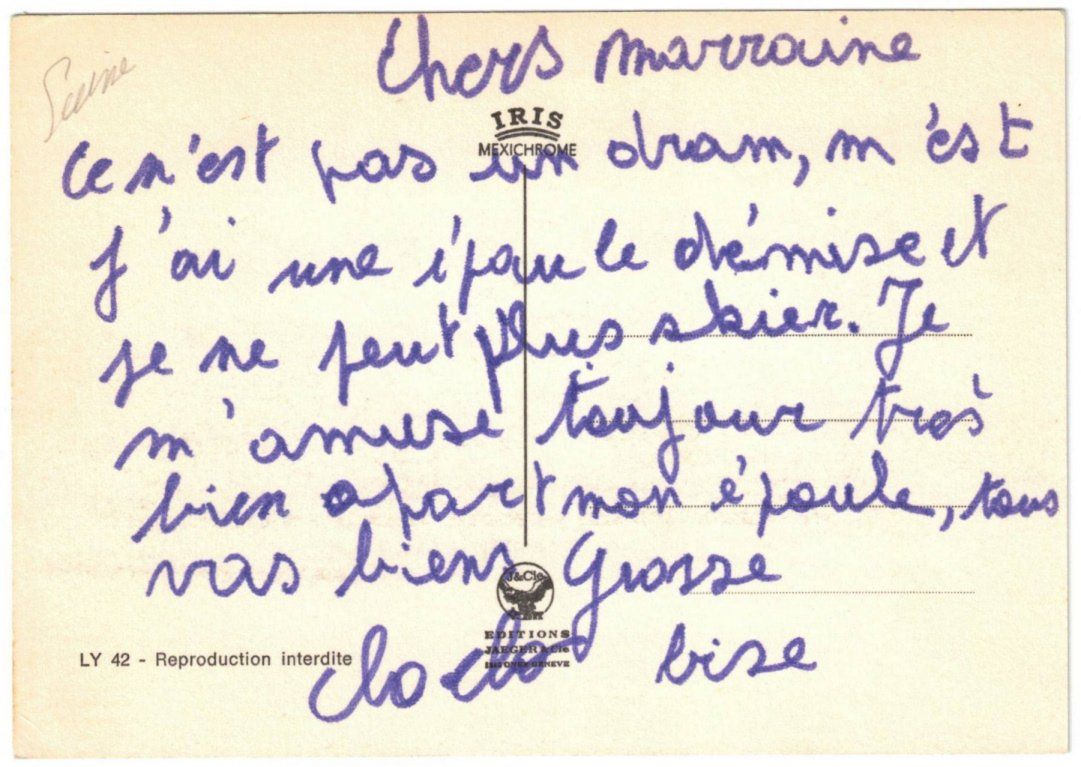 Chers marraine
IRIS
MEXICHROME
Ce n'est pas un dram, m'ést
J'ai une épaule démise et
je ne peut plus skier. Je
m'amusé toujour très
bien apart mon épaule, tous
vas biens Grosse
J&Cie
EDITIONS
JAEGER & Cie
GENEVE
LY 42 - Reproduction interdite
Cloclo bise